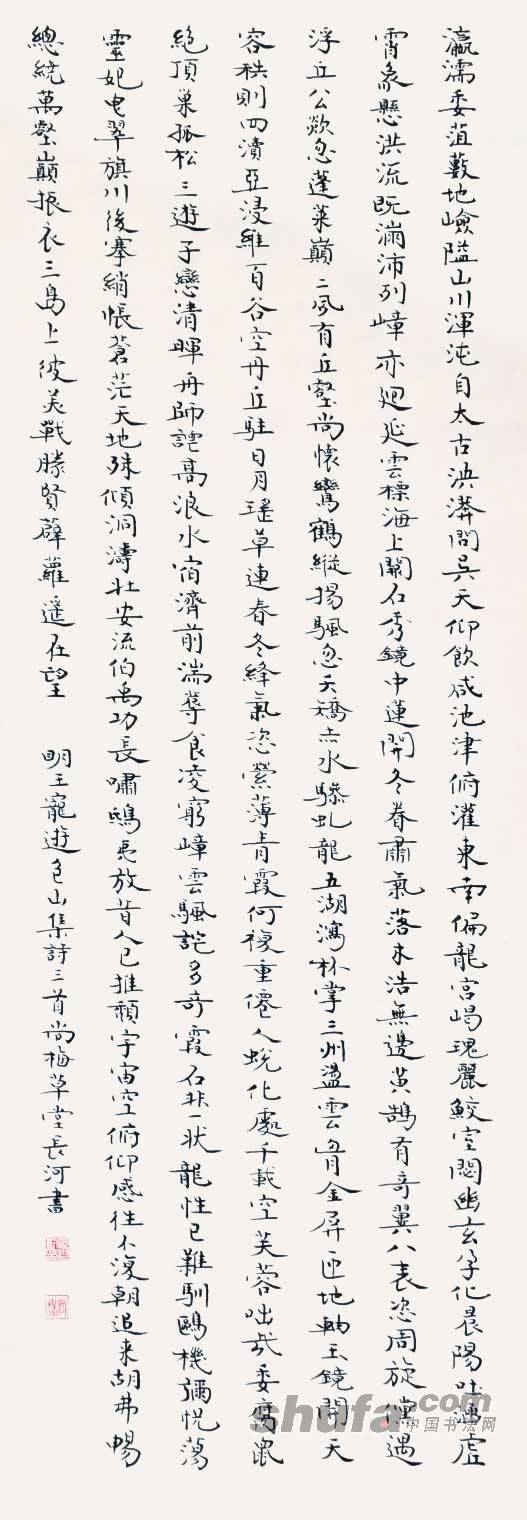 瀛濡委菹藪地嶮隘山川渾沌自太古泱漭問吴天仰飲咸池津俯灌東南偏龍宮嵑瑰麗鮫室閟幽玄孕化晨陽吐涵虛
霄象懸洪流既滿沛列嶂亦迴延雲標海上闕石秀鏡中蓮開冬眷肅氣落木浩無邊黄鵠有奇翼八表恣周旋儻遇
浮丘公欻忽蓬萊巔二夙有丘壑尚懷鸞鶴縱揚颿忽夭矯赤水驂虬龍五湖瀉杯掌三州盪雲胷金屏匝地軸玉鏡開天
容秩則四瀆亞浸維百谷空丹丘駐日月瑤草連春冬絳氣恣縈薄青霞何複重僊人蛻化處千載空芙蓉咄哉委腐鼠
絕頂巢孤松三遊子戀清暉舟師詫高浪水宿濟前湍蓐食凌窮嶂雲颿詭多奇霞石非一狀龍性已難馴鷗機彌悦蕩
靈妃电翠旗川後搴綃帳蒼茫天地殊傾洞濤壯安流伯禹功長嘯鴟夷放昔人已推頹宇宙空俯仰感往不復朝追来胡弗暢
總統萬壑巔振衣三島上彼美戰勝賢薜蘿遥在望 明王寵遊包山集詩三首尚梅草堂長河書
shufa.com
中国书法网